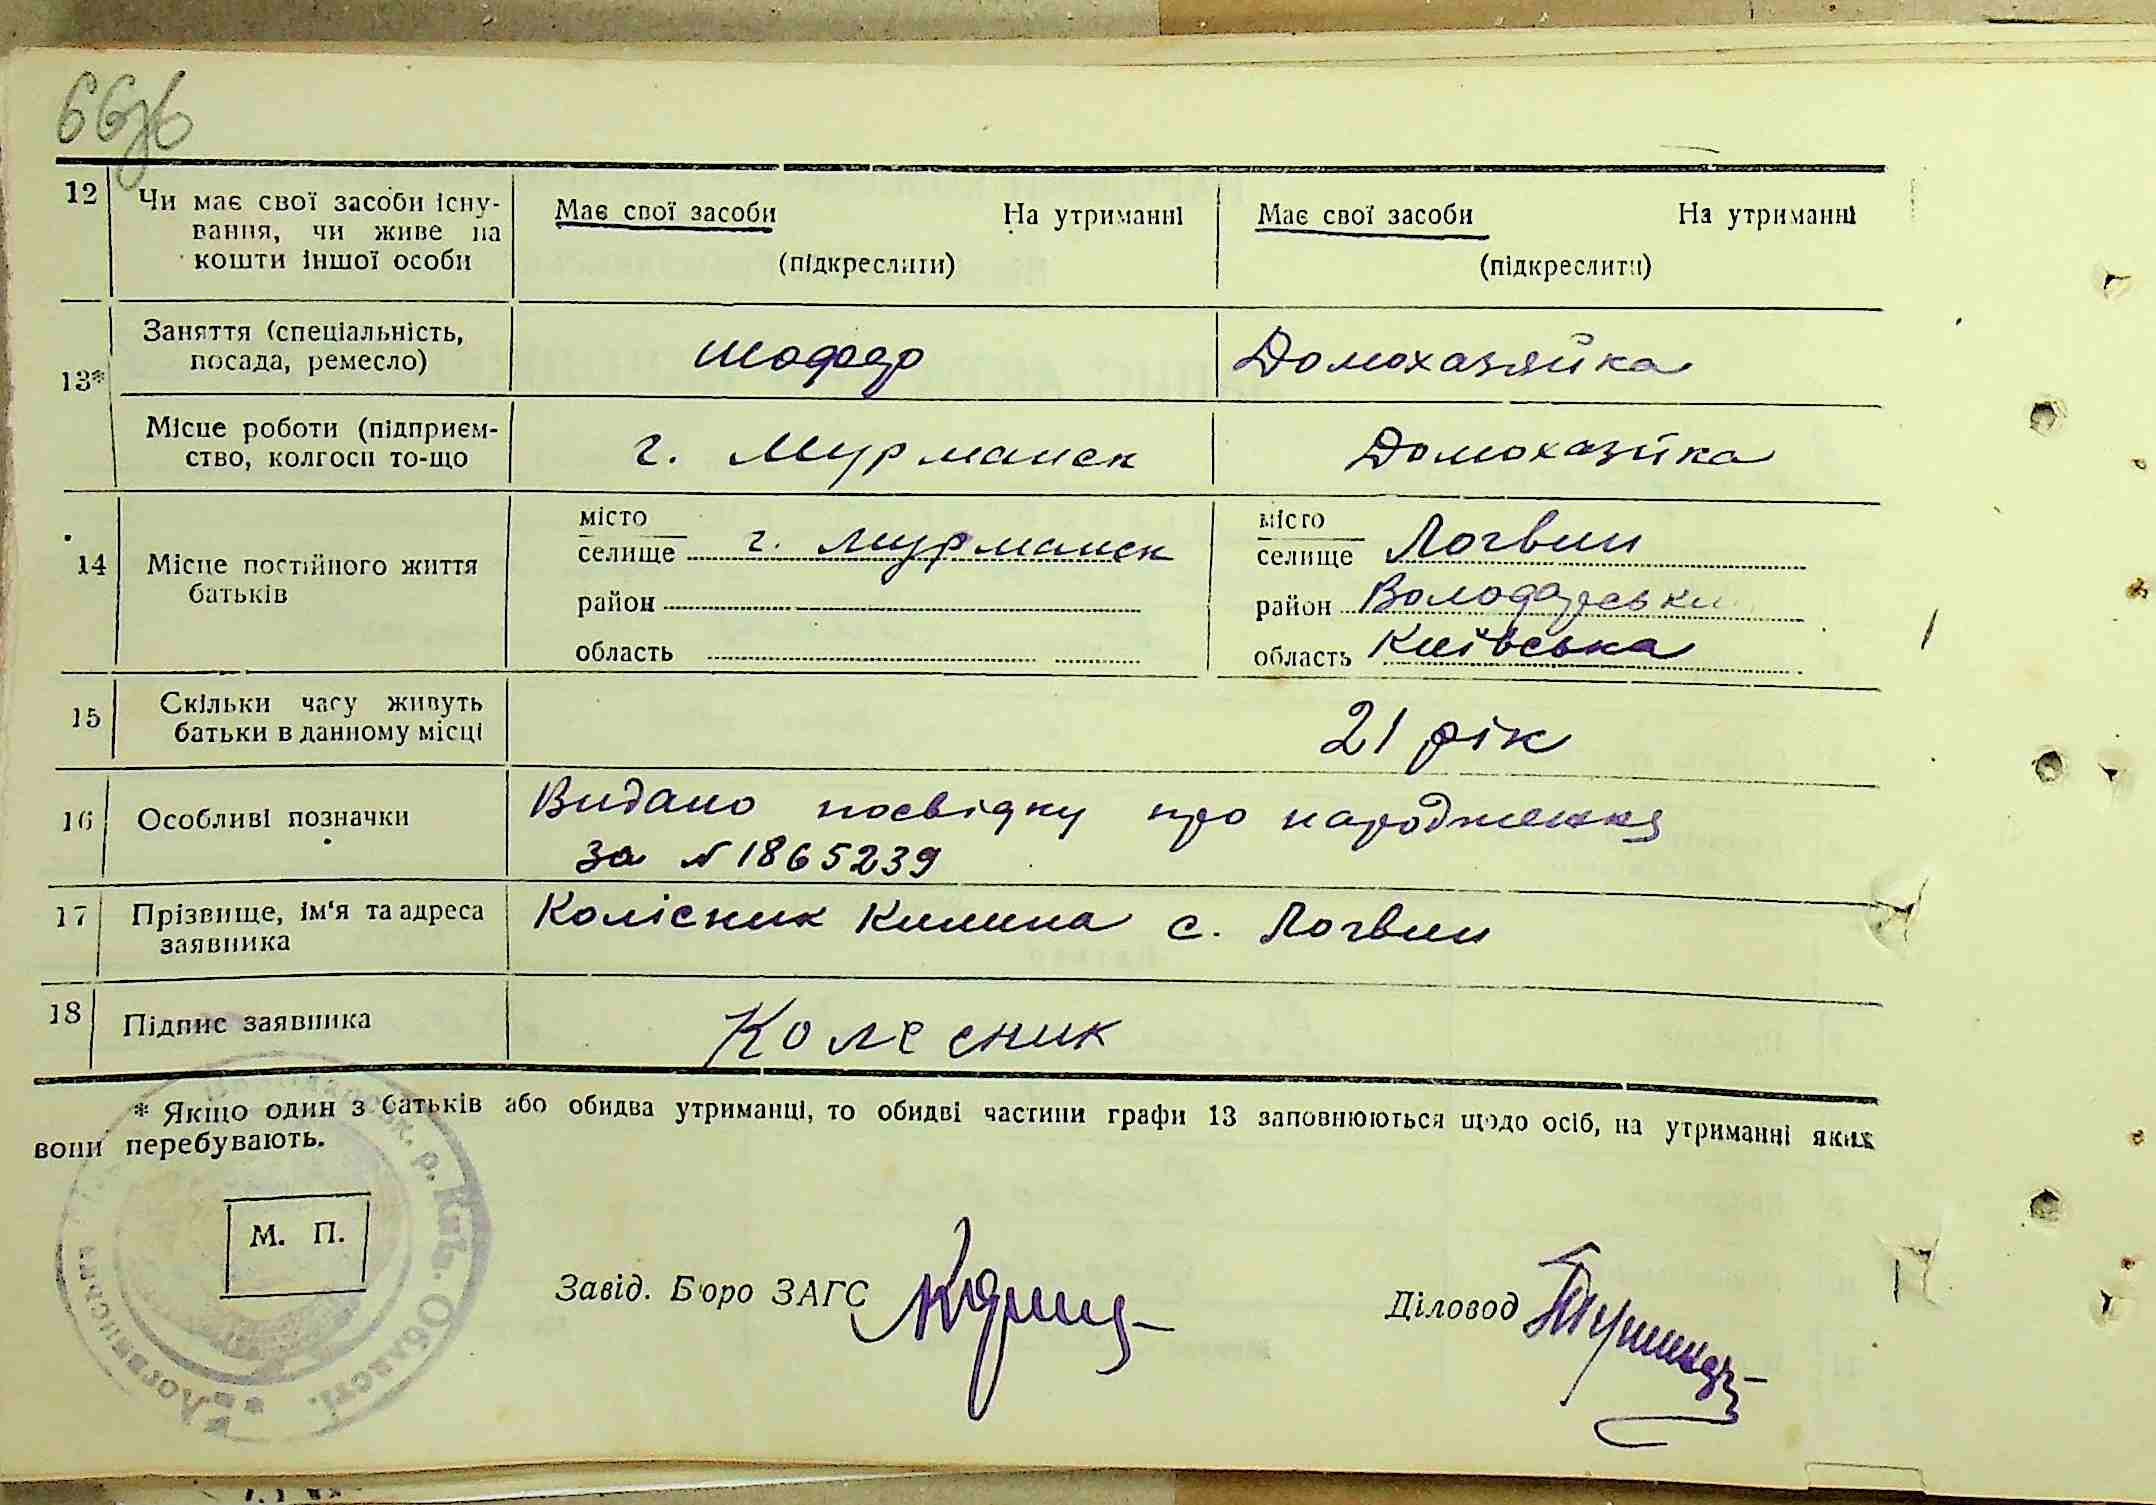 66зв
12 Чи має свої засоби існу-
вання, чи живе на
кошти іншої особи
Має свої засоби На утриманні
(підкреслити)
Має свої засоби На утриманні
(підкреслити)
13*
Заняття (спеціальність,
посада, ремесло)
шофер
Домохазяйка
Місце роботи (підприєм-
ство, колгосп то-що
г. Мурманск
Домохазйка
14 Місце постійного життя
батьків
місто
селище г. Мурманск
район
область
місто
селище Логвин
район Володарськи
область Київська
15 Скільки часу живуть
батьки в данному місці
21 рік
16 Особливі позначки
Видано посвідку про народження
за N 1865239
17 Прізвище, ім'я та адреса
заявника
Колісник Килина с. Логвин
18 Підпис заявника
Колесник
* Якщо один з батьків або обидва утриманці, то обидві частини графи 13 заповнюються щодо осіб, на утриманні яких
вони перебувають.
М. П.
р. Київ. Області.
Завід. Бюро ЗАГС
Діловод